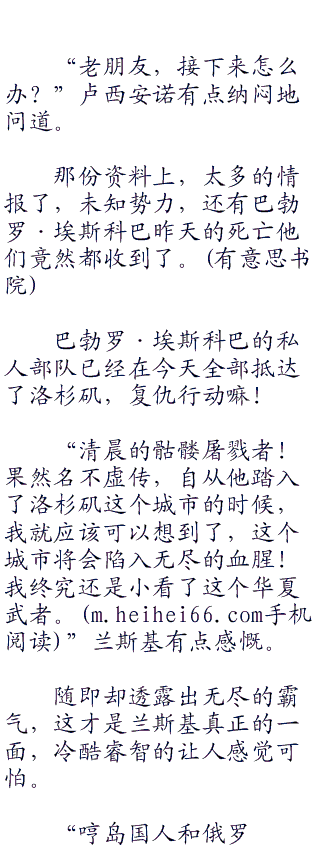 “老朋友，接下来怎么
办？”卢西安诺有点纳闷地
问道。
那份资料上，太多的情
报了，未知势力，还有巴勃
罗·埃斯科巴昨天的死亡他
们竟然都收到了。(有意思书
院)
巴勃罗·埃斯科巴的私
人部队已经在今天全部抵达
了洛杉矶，复仇行动嘛！
“清晨的骷髅屠戮者！
果然名不虚传，自从他踏入
了洛杉矶这个城市的时候，
我就应该可以想到了，这个
城市将会陷入无尽的血腥！
我终究还是小看了这个华夏
武者。(m.heihei66.com手机
阅读)”兰斯基有点感慨。
随即却透露出无尽的霸
气，这才是兰斯基真正的一
面，冷酷睿智的让人感觉可
怕。
“哼岛国人和俄罗